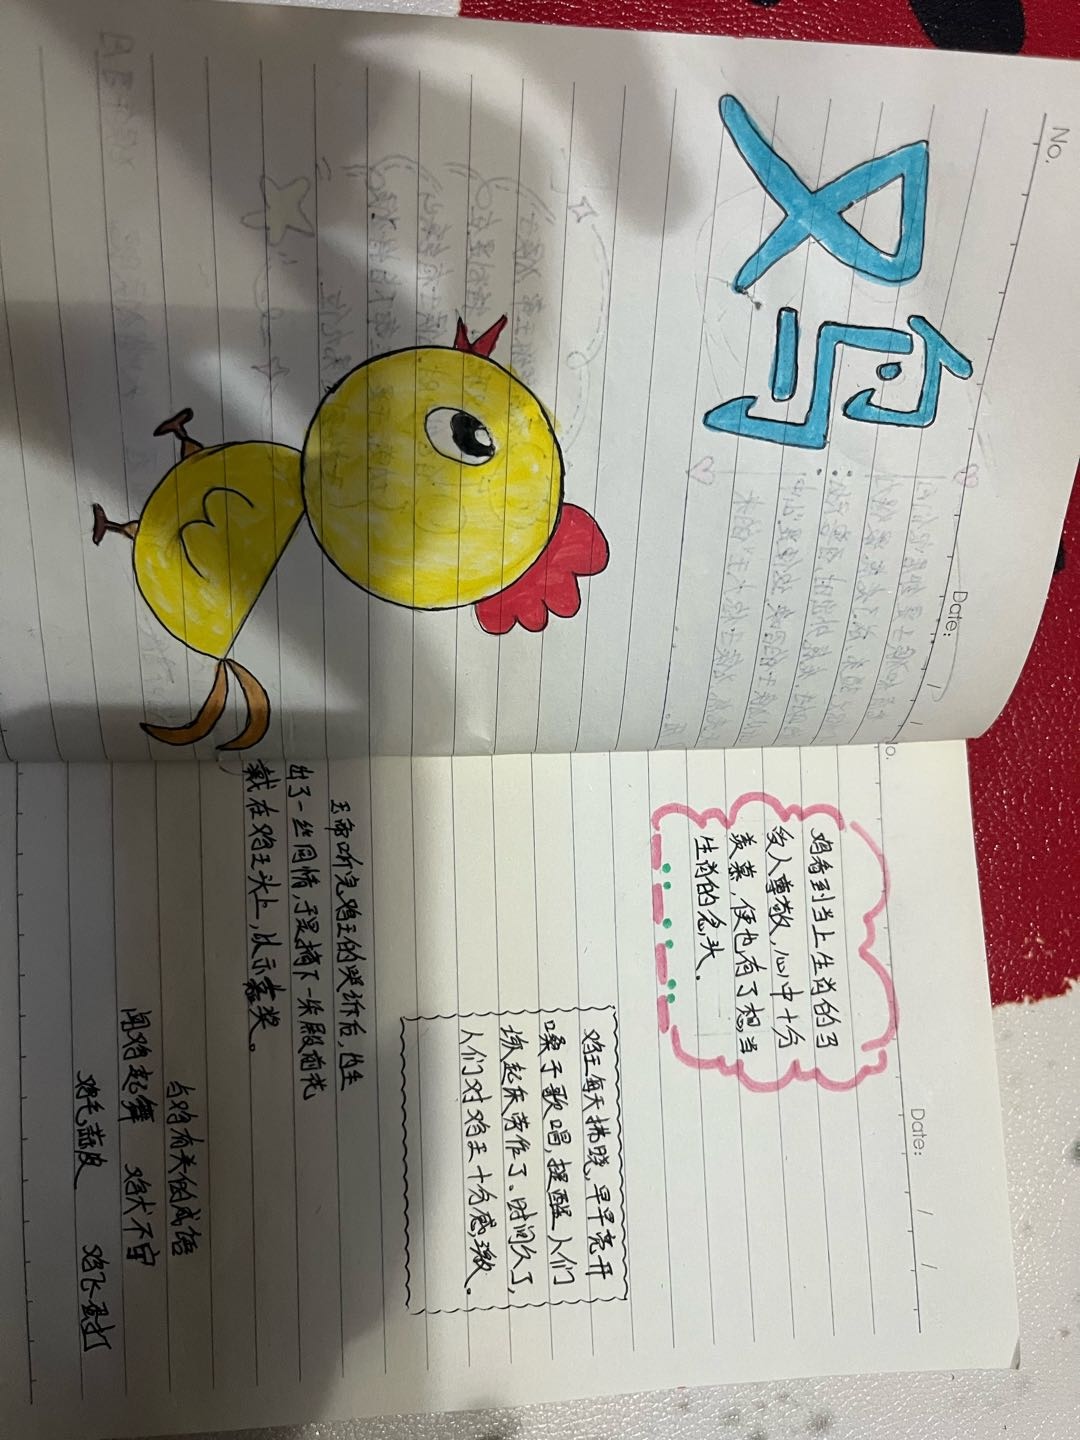 No.
Date:
鸡
Date:
鸡看到当上生肖的马
受人尊敬,心中十分
羡慕,便也有了想当
生肖的念头.
鸡王每天拂晓,早早亮开
嗓子歌唱,提醒人们
该起床劳作了。时间久了,
人们对鸡王十分感激。
玉帝听完鸡王的哭诉后,内生
出了一丝同情,于是摘下一朵殿前花
戴在鸡王头上,以示嘉奖。
与鸡有关的成语
闻鸡起舞 鸡犬不宁
鸡毛蒜皮 鸡飞蛋打